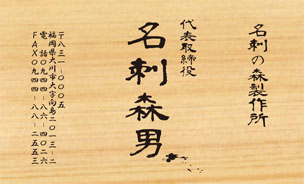 名刺の森製作所
代表取締役
名刺森男
〒八三一-〇〇〇五
福岡県大川市大字向島二〇一三-二
電話〇九四四-八六-四〇二六
FAX〇九四四-八八-二五五三